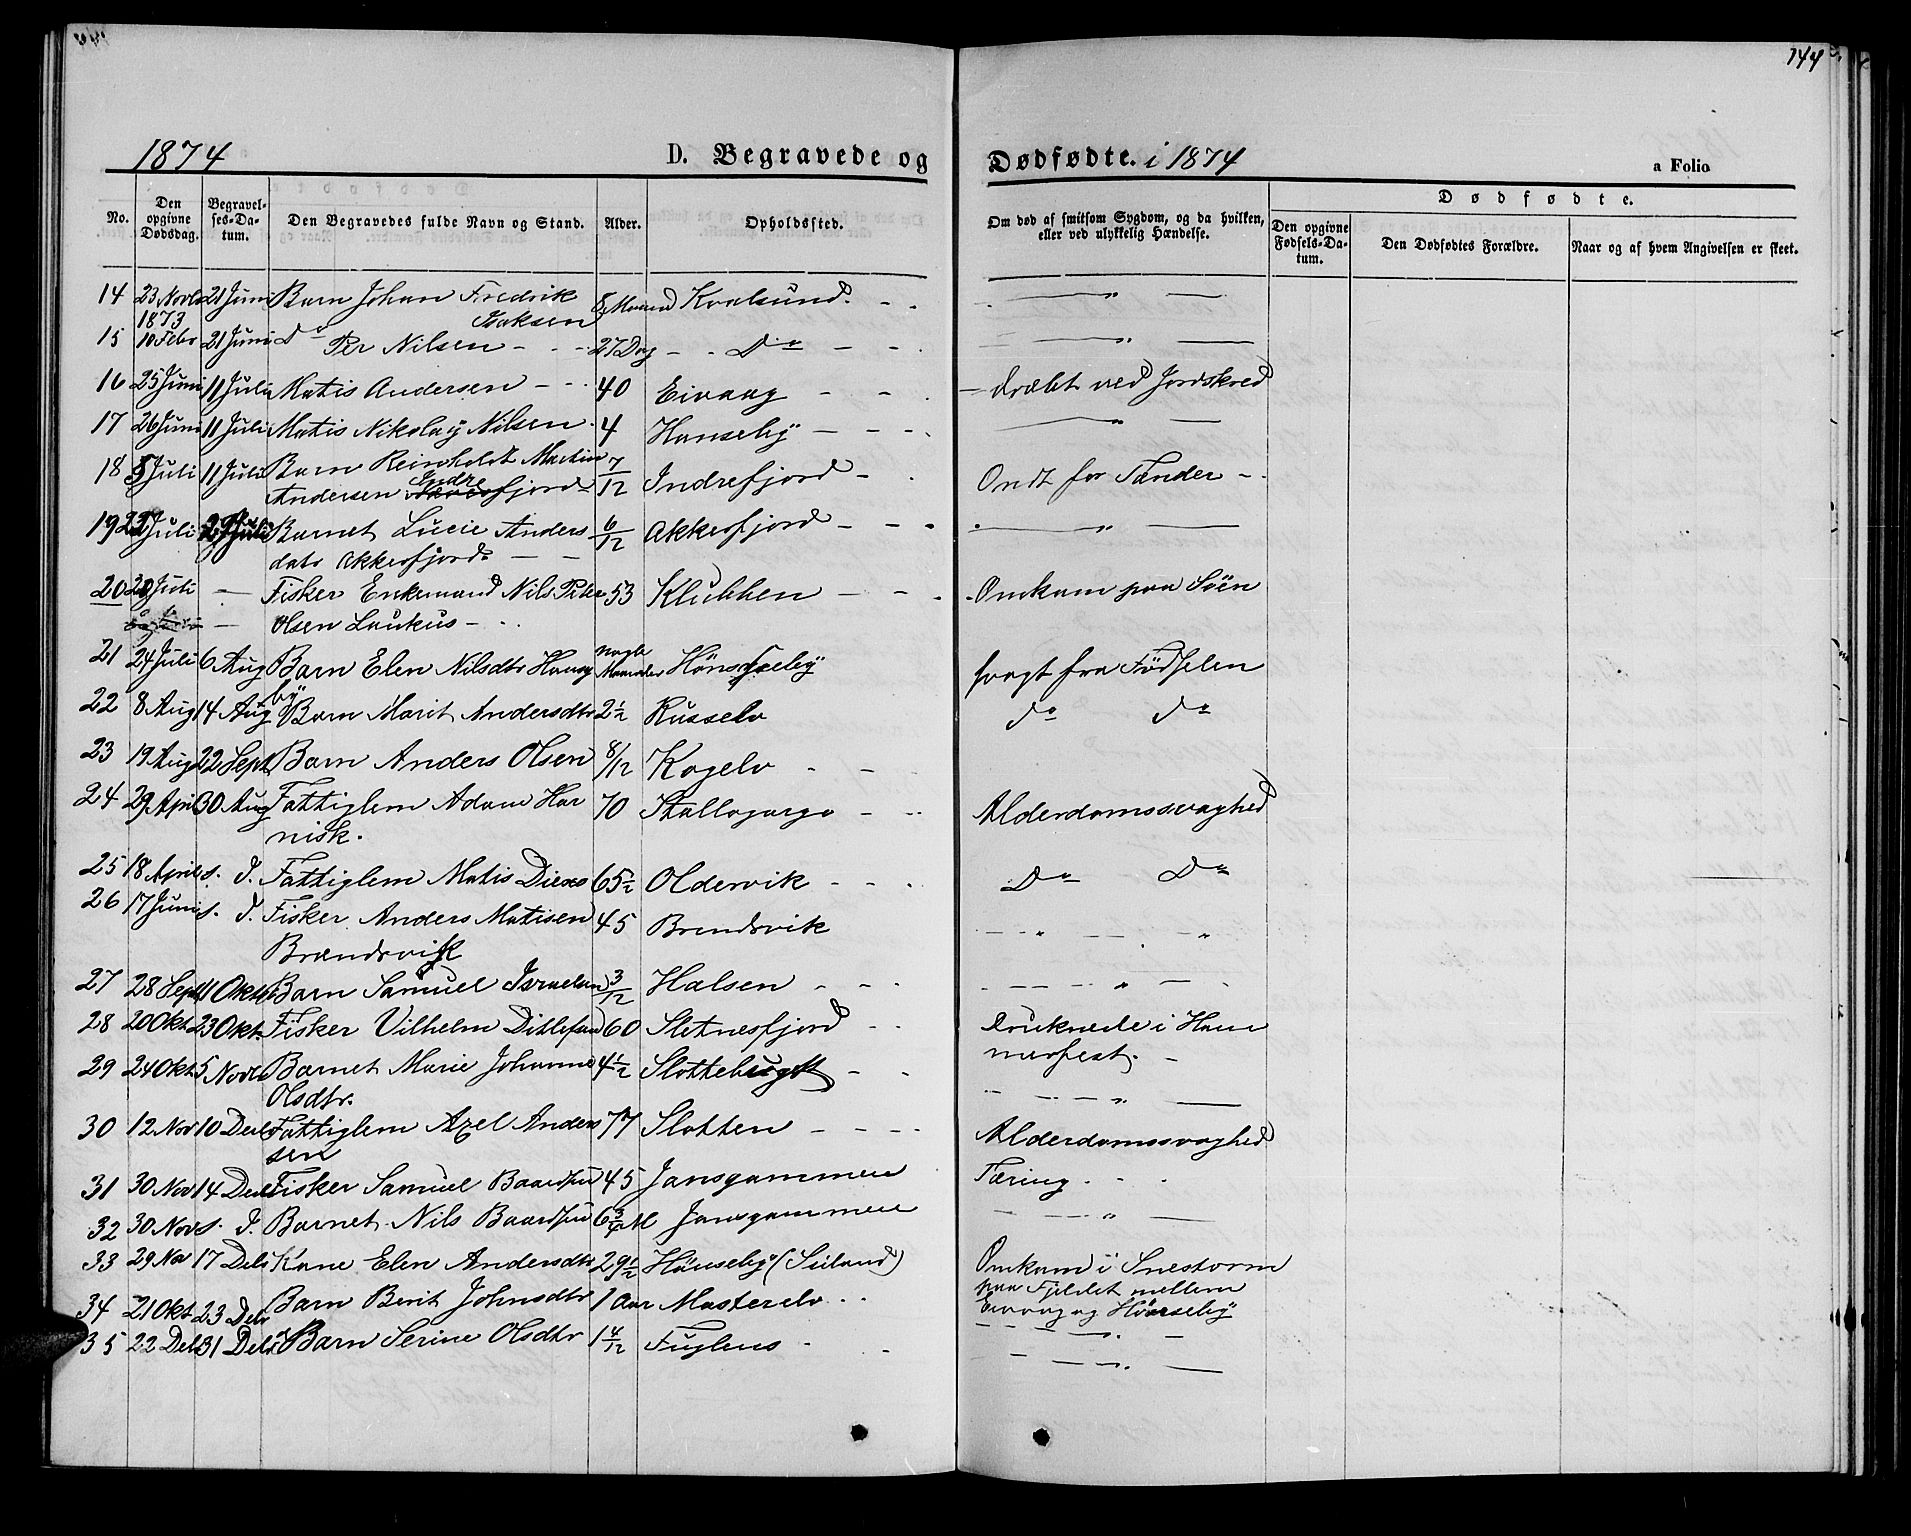 144
1874 D. Begravede og Dødfødte. i 1874 a Folio
No. Den opgivne Dødsdag. Begravelses-Datum. Den Begravedes fulde Navn og Stand. Alder. Opholdssted. Om død af smitsom Sygdom, og da hvilken, eller ved ulykkelig Hændelse. Dødfødte. Den opgivne Fødsels-Datum. Den Dødfødtes Forældre. Naar og af hvem Angivelsen er skeet.
14 23 Novbr 21 Juni Barn Johan Fredrik 8 Maaned Kvalsund - - — " —
1873 Isaksen
15 10 Febr 21 Juni Do Per Nilsen - - - 27 Dag - - Do - - — " —
16 25 Juni 11 Juli Matis Andersen - - 40 Eivaag - - - dræbt ved Jordskred
17 26 Juni 11 Juli Matis Nikolay Nilsen 4 Hønseby - - - — " —
18 5 Juli 11 Juli Barn Reinholdt Martin 7/12 Indrefjord - - Ondt for Tænder -
Andersen Indrefjord
19 22 Juli 29 Juli Barnet Lucie Anders 6/12 Akkerfjord - - - — " —
datr Akkerfjord - -
20 20 Juli - Fisker Enkemand Nils Peter 53 Klubben - - - Omkom paa Søen
- Olsen Laukus - -
21 24 Juli 6 Aug Barn Elen Nilsdtr Hønse nogle Maaneder Hønseby svagt fra Fødselen
by
22 8 Aug 14 Aug Barn Marit Andersdtr 2½ Russelv do do
23 19 Aug 22 Sept Barn Anders Olsen 8/12 Kogelv - -
24 29 April 30 Aug Fattiglem Adam Har 70 Stallogargo - - Alderdomssvaghed
nisk.
25 18 April s. D. Fattiglem Matis 65½ Oldervik - - - Do Do
26 17 Juni s. D. Fisker Anders Matisen 45 Brendsvik - - " - - "
Brændsvik
27 28 Sept 11 Oktbr Barn Samuel Israelsen 3/12 Halsen - - - - - - " - -
28 20 Okt 23 Okt. Fisker Vilhelm Ditlefsen 60 Sletnesfjord - - Druknede i Ham
29 24 Okt 5 Novbr Barnet Marie Johanne 4½ Slottebugt - - merfest. -
Olsdtr. - - - " —
30 12 Nov 10 Decbr Fattiglem Axel Anders 77 Slotten - - - - Alderdomssvaghed
sen
31 30 Nov 14 Decbr Fisker Samuel Baardsen 45 Jansgammen Tæring - - -
32 30 Nov s. D. Barnet Nils Baardsen 6¾ M Jansgammen - - " —
33 29 Nov 17 Debr Kone Elen Andersdtr 29½ Hønseby (Seiland) Omkom i Snestorm
paa Fjeldet mellem
34 21 Okt 23 Debr Barn Berit Johnsdtr 1 Aar Masterelv - - Eivaag og Hønseby
- - - " -
35 22 Debr 31 Debr Barn Serine Olsdtr 1 4/12 Fuglens - - - - " —